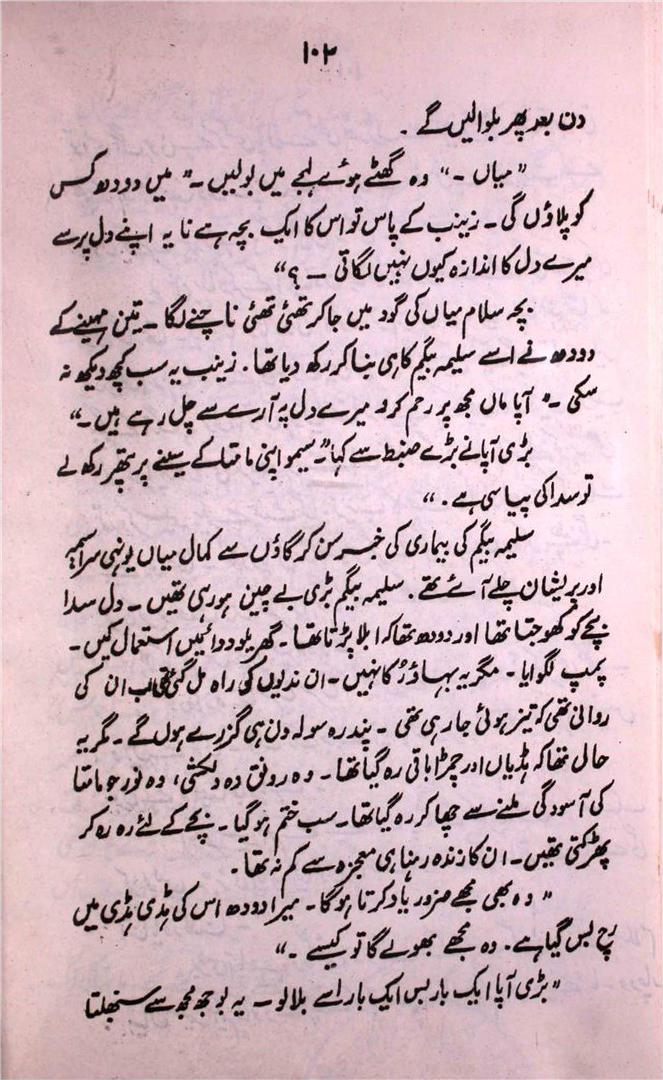 ۱۰۲
دن بعد پھر بلوالیں گے ۔
” میاں ۔“ وہ گھٹے ہوئے لہجے میں بولیں ۔” میں دودھ کس
کو پلاؤں گی ۔ زینب کے پاس تو اس کا ایک بچہ ہے نا یہ اپنے دل پر سے
میرے دل کا اندازہ کیوں نہیں لگاتی ۔ ؟“
بچہ سلام میاں کی گود میں جا کر تھئی تھئی ناچنے لگا ۔ تین مہینے کے
دودھ نے اسے سلیمہ بیگم کا ہی بنا کر رکھ دیا تھا ۔ زینب یہ سب کچھ دیکھ نہ
سکی ۔” آپا ماں مجھ پر رحم کرو میرے دل پہ آرے سے چل رہے ہیں ۔“
بڑی آپا نے بڑے ضبط سے کہا ” سیمو اپنی مامتا کے سینے پر پتھر رکھ لے
تو سدا کی پیاسی ہے ۔ “
سلیمہ بیگم کی بیماری کی خبر سن کر گاؤں سے کمال میاں یونہی سراسیمہ
اور پریشان چلے آئے تھے ۔ سلیمہ بیگم بڑی بے چین ہو رہی تھیں ۔ دل سدا
بچے کو کھوجتا تھا اور دودھ تھا کہ ابلا پڑتا تھا ۔ گھریلو دوائیں استعمال کیں ۔
پمپ لگوایا ۔ مگر یہ بہاؤ رُکا نہیں ۔ ان ندیوں کو راہ مل گئی تھی اب ان کی
روانی تھی کہ تیز ہوئی جا رہی تھی ۔ پندرہ سولہ دن ہی گزرے ہوں گے ۔ مگر یہ
حال تھا کہ ہڈیاں اور چمڑا باقی رہ گیا تھا ۔ وہ رونق وہ دلکشی ، وہ نور جو مامتا
کی آسودگی ملنے سے چھا کر رہ گیا تھا ۔ سب ختم ہو گیا ۔ بچے کے لئے رہ رہ کر
پھڑکتی تھیں ۔ ان کا زندہ رہنا ہی معجزہ سے کم نہ تھا ۔
” وہ بھی مجھے ضرور یاد کرتا ہوگا ۔ میرا دودھ اس کی ہڈی ہڈی میں
رچ بس گیا ہے ۔ وہ مجھے بھولے گا تو کیسے ۔“
” بڑی آپا ایک بار بس ایک بار اسے بلا لو ۔ یہ بوجھ مجھ سے سنبھلتا